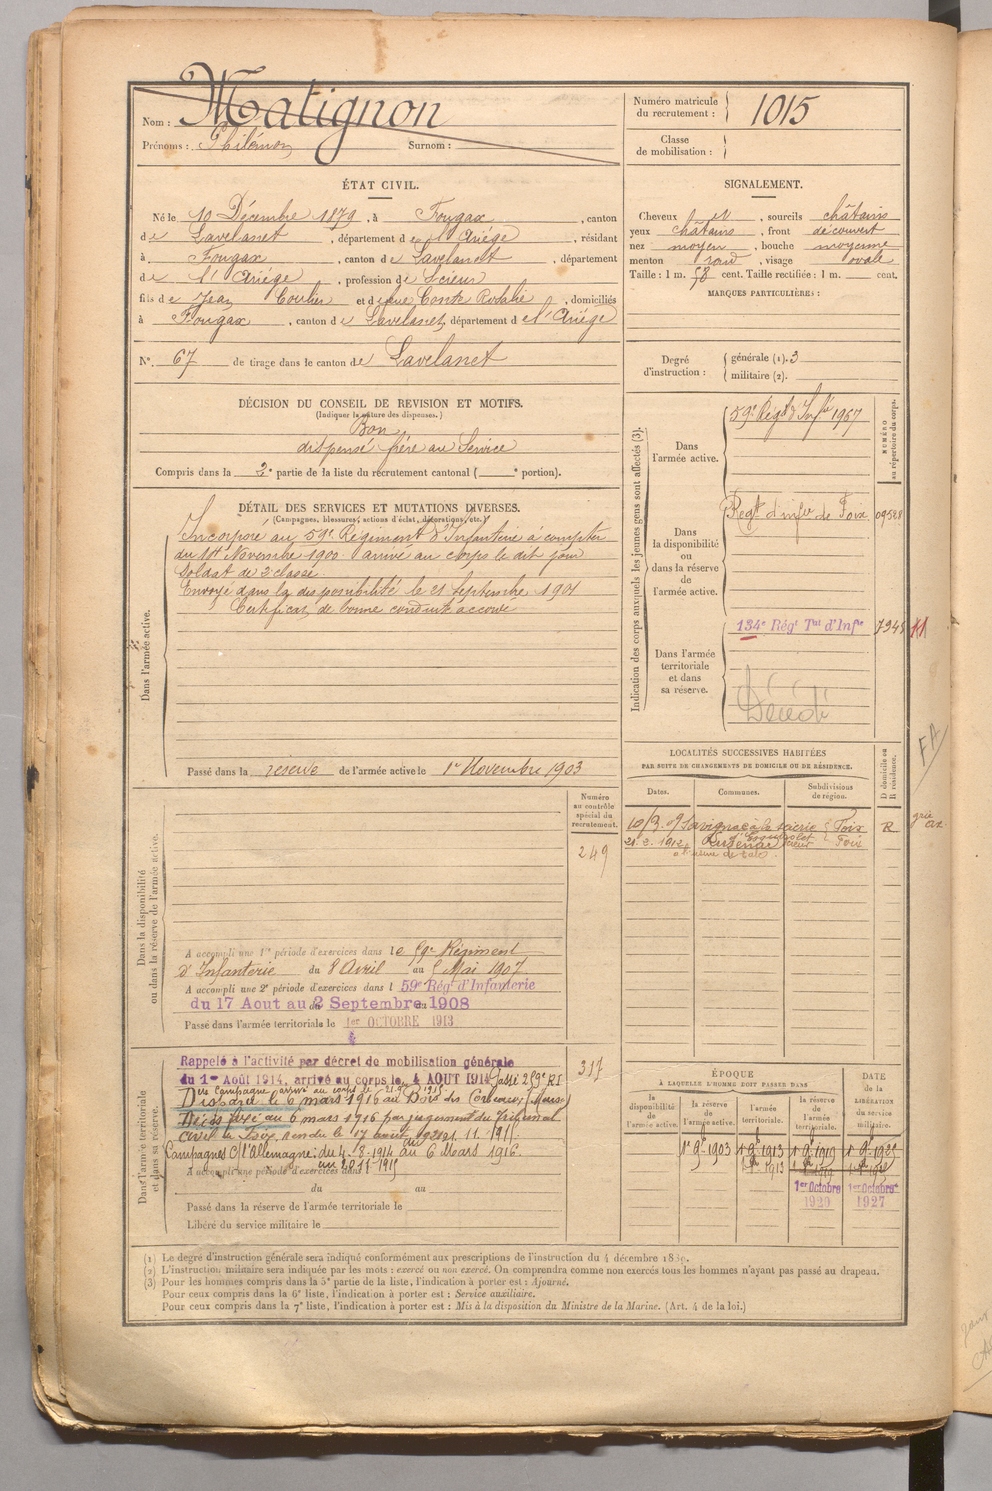 Nom : Matignon
Prénoms : Philémon Surnom :
Numéro matricule du recrutement : 1015
Classe de mobilisation :
ÉTAT CIVIL.
Né le 10 Décembre 1879, à Fougax, canton
de Lavelanet, département de l'Ariége, résidant
à Fougax, canton de Lavelanet, département
de l'Ariége, profession de Scieur
fils de Jean Coulier et de feue Conte Rosalie, domiciliés
à Fougax, canton de Lavelanet, département de l'Ariége
N°. 67 de tirage dans le canton de Lavelanet
SIGNALEMENT.
Cheveux et, sourcils châtains
yeux châtains, front découvert
nez moyen, bouche moyenne
menton rond, visage ovale
Taille : 1 m. 58 cent. Taille rectifiée : 1 m. cent.
MARQUES PARTICULIÈRES :
Degré d'instruction : générale (1). 3
militaire (2).
DÉCISION DU CONSEIL DE REVISION ET MOTIFS.
(Indiquer la nature des dispenses.)
Bon
dispensé frère au Service
Compris dans la 2e partie de la liste du recrutement cantonal ( e portion).
DÉTAIL DES SERVICES ET MUTATIONS DIVERSES.
(Campagnes, blessures, actions d'éclat, décorations, etc.)
Dans l'armée active.
Incorporé au 59e Régiment d'Infanterie à compter
du 14 Novembre 1900 arrivé au corps le dit jour
Soldat de 2e classe.
Envoyé dans la disponibilité le 21 Septembre 1901
Certificat de bonne conduite accordé
Passé dans la réserve de l'armée active le 1er Novembre 1903
Indication des corps auxquels les jeunes gens sont affectés (3).
NUMÉRO au répertoire du corps.
Dans l'armée active.
59e Régt d'Infie 1967
Dans la disponibilité ou dans la réserve de l'armée active.
Régt d'infie de Foix 09528
Dans l'armée territoriale et dans sa réserve.
134e Régt Tal d'Infie 7945
Décédé
LOCALITÉS SUCCESSIVES HABITÉES
PAR SUITE DE CHANGEMENTS DE DOMICILE OU DE RÉSIDENCE.
Dates. Communes. Subdivisions de région. D domicile ou R résidence.
10/3. 09 Savignac à la scierie Foix R
21. 2. 1912 Luzenac Foix
à l'usine de talc
FA
Dans la disponibilité ou dans la réserve de l'armée active.
Numéro au contrôle spécial du recrutement.
249
A accompli une 1re période d'exercices dans le 59e Régiment
d'Infanterie du 8 Avril au 5 Mai 1907
A accompli une 2e période d'exercices dans l 59e Régt d'Infanterie
du 17 Aout au 2 Septembre 1908
Passé dans l'armée territoriale le 1er OCTOBRE 1913
Dans l'armée territoriale et dans sa réserve.
317
Rappelé à l'activité par décret de mobilisation générale
du 1er Août 1914, arrivé au corps le 4 AOUT 1914 Passé 259e RI
Disparu le 6 mars 1916 au Bois des Corbeaux (Meuse)
Décès fixé au 6 mars 1916 par jugement du Tribunal
civil de Foix, rendu le 17 août 1921
Campagnes C/ l'allemagne : du 4-8-1914 au 6 Mars 1916.
A accompli une période d'exercices dans
du au
Passé dans la réserve de l'armée territoriale le
Libéré du service militaire le
ÉPOQUE
À LAQUELLE L'HOMME DOIT PASSER DANS
la disponibilité de l'armée active. la réserve de l'armée active. l'armée territoriale. la réserve de l'armée territoriale.
DATE de la LIBÉRATION du service militaire.
1er 9bre 1903 1er 9bre 1913 1er 9bre 1919 1er 9bre 1925
1er Octobre 1920 1er Octobre 1927
(1) Le degré d'instruction générale sera indiqué conformément aux prescriptions de l'instruction du 4 décembre 1889.
(2) L'instruction militaire sera indiquée par les mots : exercé ou non exercé. On comprendra comme non exercés tous les hommes n'ayant pas passé au drapeau.
(3) Pour les hommes compris dans la 5e partie de la liste, l'indication à porter est : Ajourné.
Pour ceux compris dans la 6e liste, l'indication à porter est : Service auxiliaire.
Pour ceux compris dans la 7e liste, l'indication à porter est : Mis à la disposition du Ministre de la Marine. (Art. 4 de la loi.)